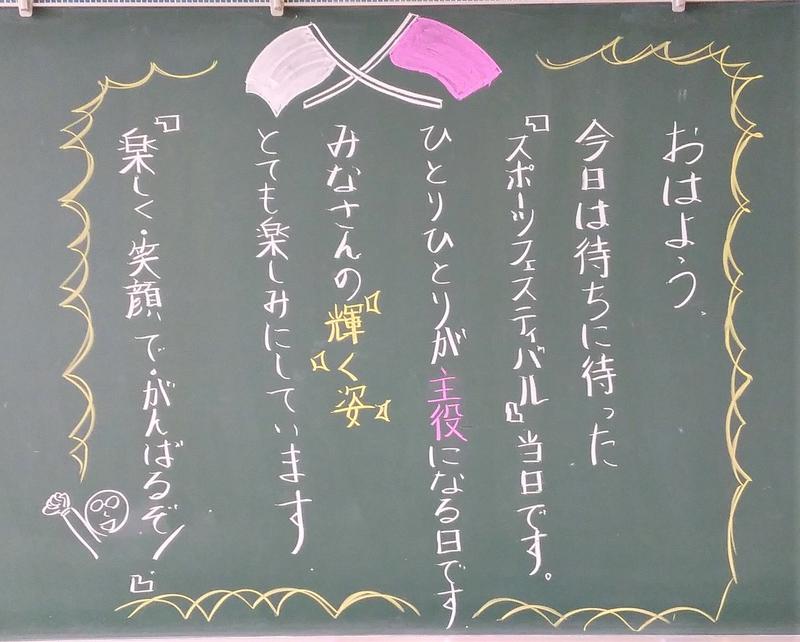 おはよう、
今日は待ちに待った
『スポーツフェスティバル』当日です。
ひとりひとりが主役になる日です
みなさんの輝く姿
とても楽しみにしています
『楽しく・笑顔で・がんばるぞ!』